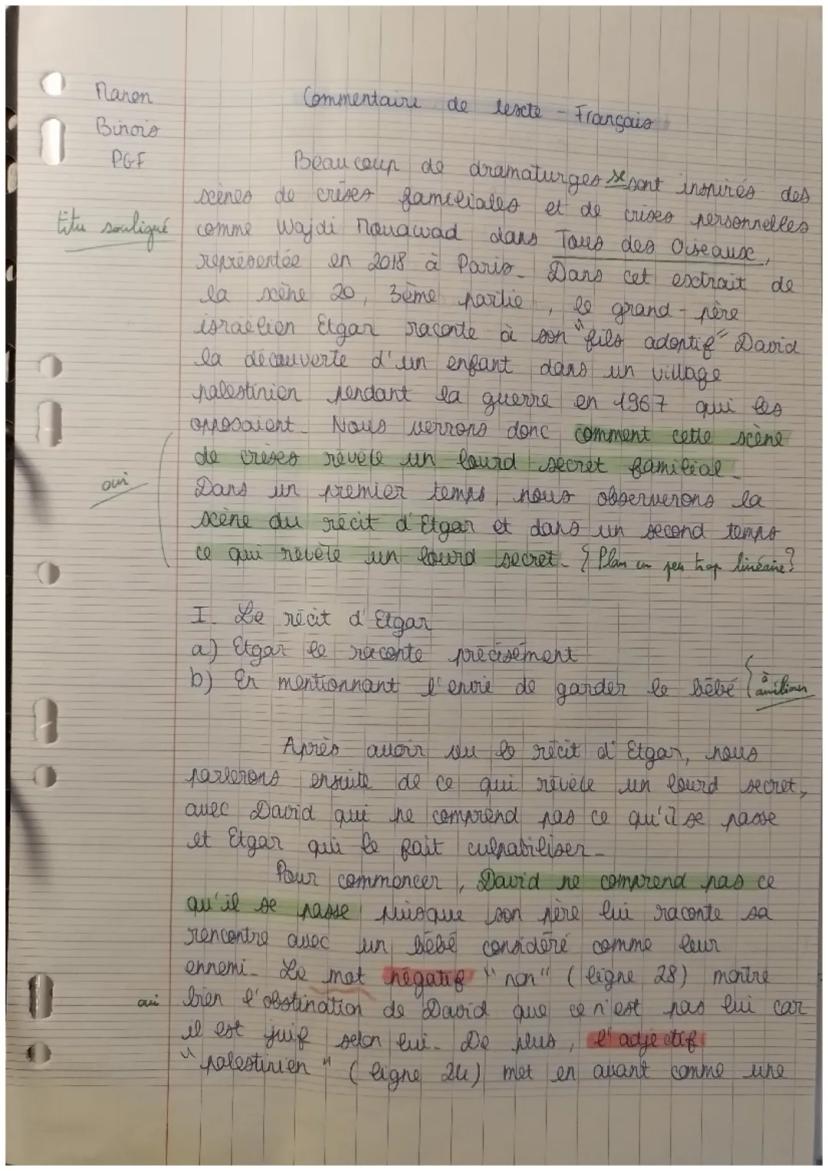 Manon
Commentaire de texte - Français
Binois
PGF
Beaucoup de dramaturges se sont inspirés des
scènes de crises familiales et de crises personnelles
titre souligné
comme Wajdi Mouawad dans Tous des Oiseaux,
représentée en 2018 à Paris. Dans cet extrait de
la scène 20, 3ème partie, le grand-père
israélien Etgar raconte à son "fils adoptif" David
la découverte d'un enfant dans un village
palestinien pendant la guerre en 1967 qui les
opposaient. Nous verrons donc comment cette scène
de crises révèle un lourd secret familial.
oui
Dans un premier temps, nous observerons la
scène du récit d'Etgar et dans un second temps
ce qui révèle un lourd secret. { Plan un peu trop linéaire ?
I. Le récit d'Etgar
a) Etgar le raconte précisément
b) En mentionnant l'envie de garder le bébé { à améliorer
Après avoir vu le récit d'Etgar, nous
parlerons ensuite de ce qui révèle un lourd secret,
avec David qui ne comprend pas ce qu'il se passe
et Etgar qui le fait culpabiliser.
Pour commencer, David ne comprend pas ce
qu'il se passe puisque son père lui raconte sa
rencontre avec un bébé considéré comme leur
ennemi. Le mot négatif "non" (ligne 28) montre
oui
bien l'obstination de David que ce n'est pas lui car
il est juif selon lui. De plus, l'adjectif
"palestinien" (ligne 24) met en avant comme une